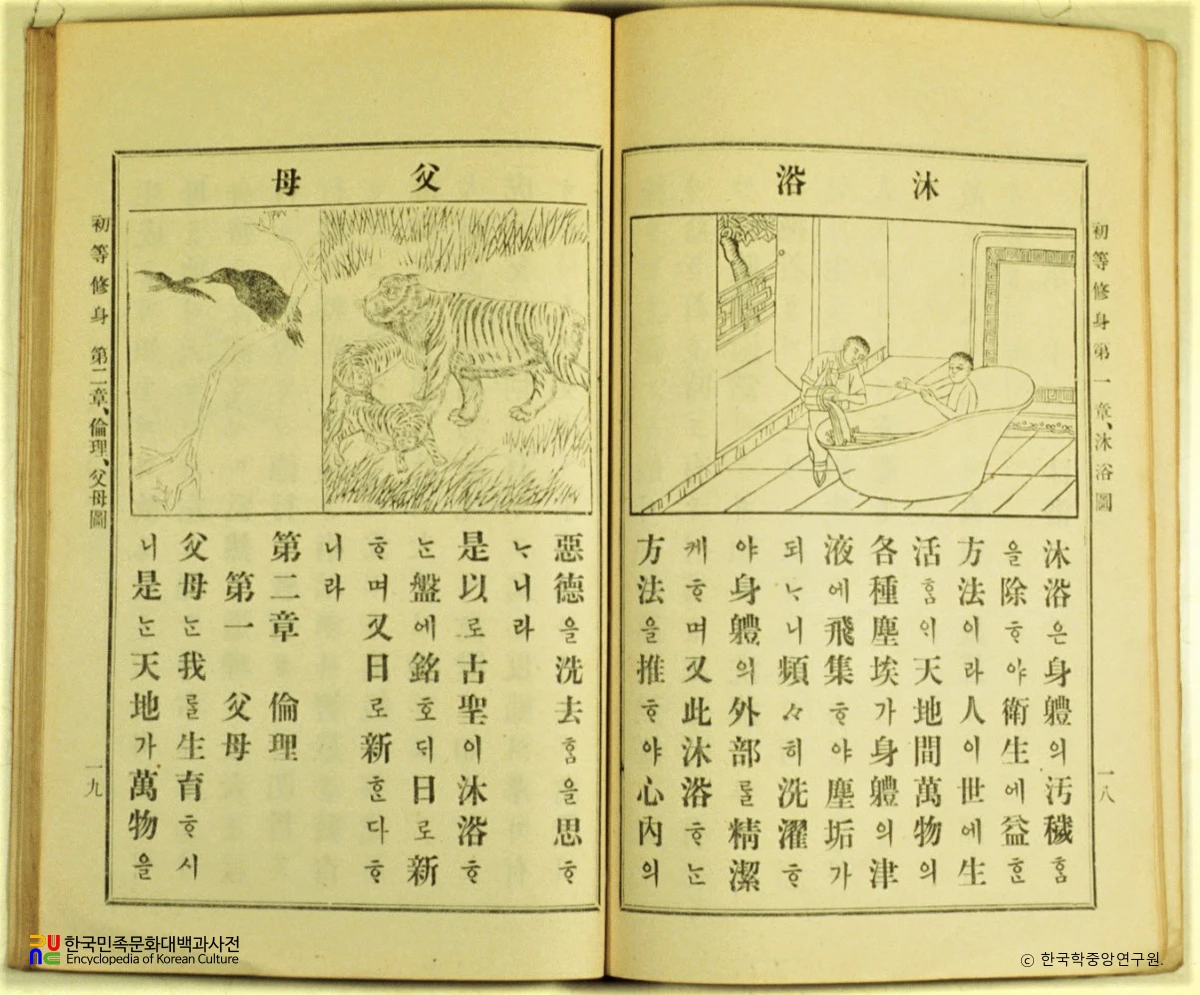 初等修身 第一章、沐浴圖
一八
沐浴
沐浴은身軆의汚穢ᄒᆞᆷ
을除ᄒᆞ야衛生에益ᄒᆞᆫ
方法이라人이世에生
活ᄒᆞᆷᄋᆡ天地間萬物의
各種塵埃가身軆의津
液에飛集ᄒᆞ야塵垢가
되ᄂᆞ니頻々히洗濯ᄒᆞ
야身軆의外部를精潔
케ᄒᆞ며又此沐浴ᄒᆞᄂᆞᆫ
方法을推ᄒᆞ야心內의
父母
惡德을洗去ᄒᆞᆷ을思ᄒᆞ
ᄂᆞ니라
是以로古聖이沐浴ᄒᆞ
ᄂᆞᆫ盤에銘호ᄃᆡ日로新
ᄒᆞ며又日로新ᄒᆞᆫ다ᄒᆞ
니라
第二章 倫理
第一 父母
父母ᄂᆞᆫ我를生育ᄒᆞ시
니是ᄂᆞᆫ天地가萬物을
初等修身 第二章、倫理、父母圖
一九
한국민족문화대백과사전
Encyclopedia of Korean Culture
ⓒ 한국학중앙연구원.